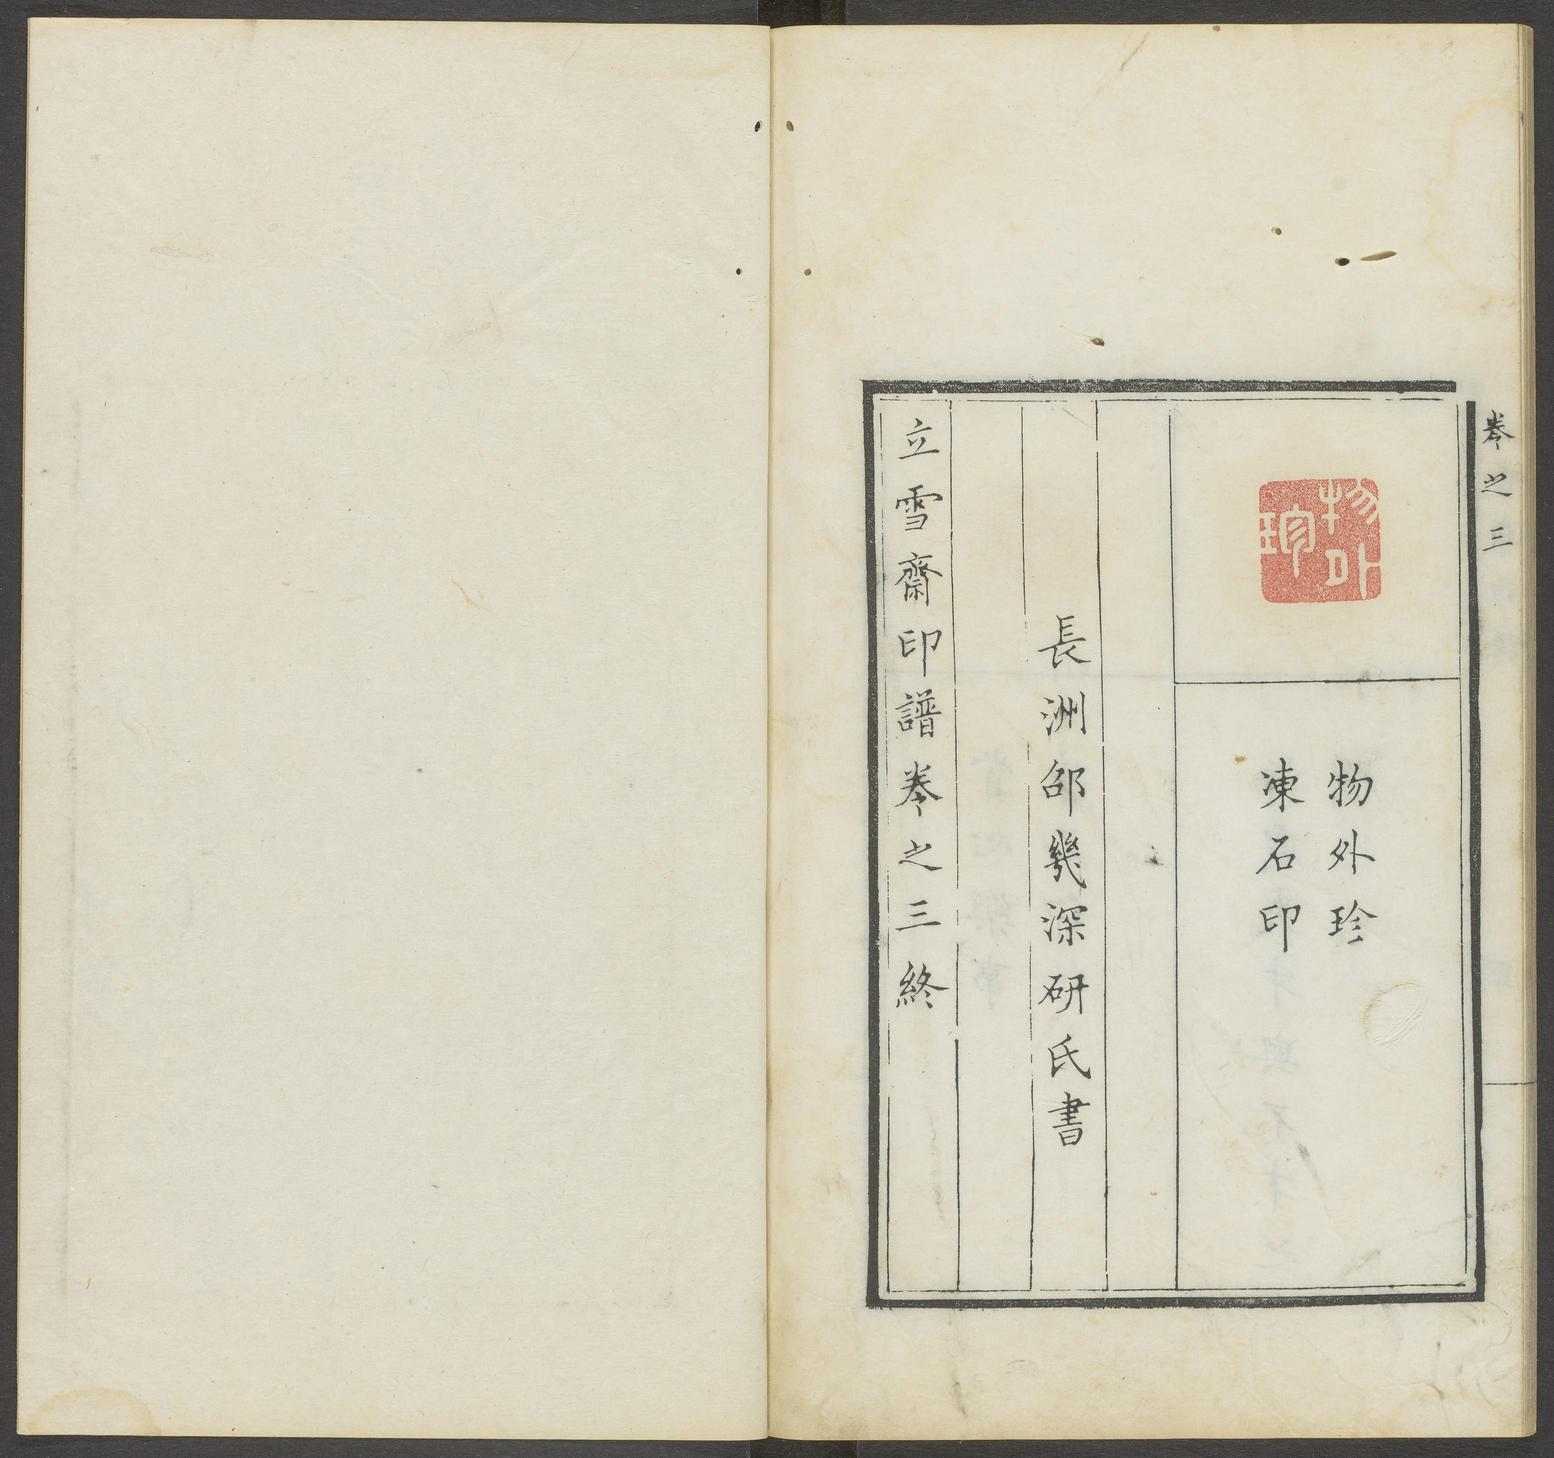 卷之三
物外珍
物外珍
凍石印
長洲邵幾深研氏書
立雪齋印譜卷之三終